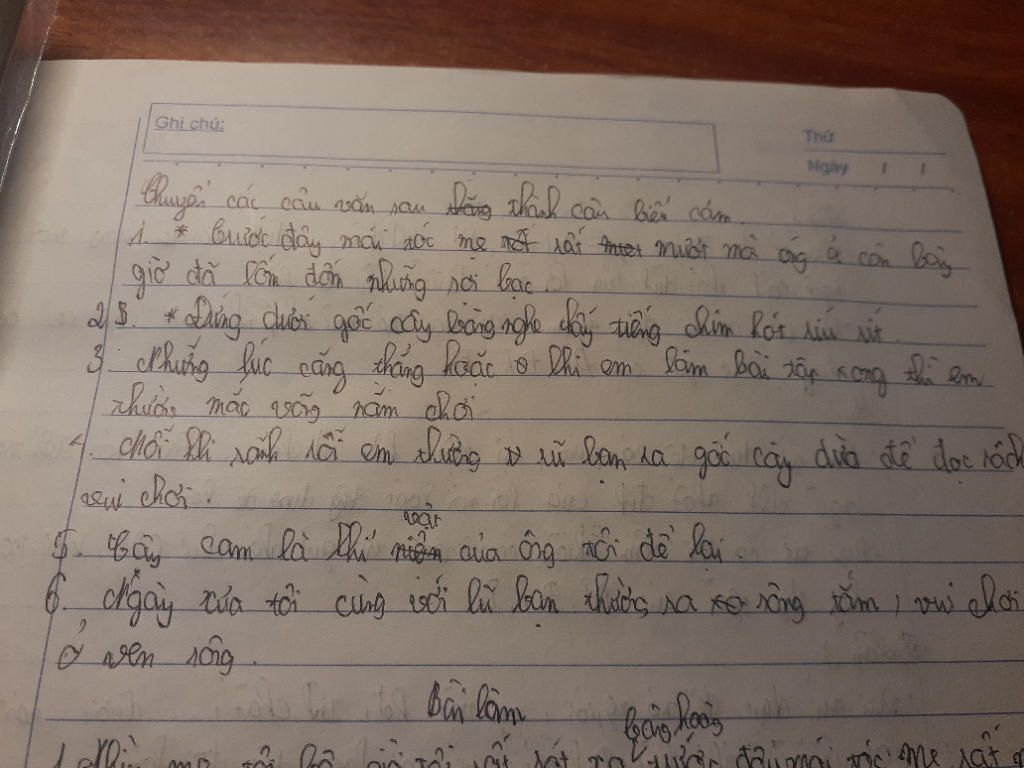 Ghi chú:
Thứ
Ngày / /
Chuyển các câu văn sau thành câu biểu cảm.
1. * Trước đây mái tóc mẹ rất mượt mà óng ả còn bây
giờ đã lốm đốm những sợi bạc.
2 * Đứng dưới gốc cây bàng nghe thấy tiếng chim hót ríu rít.
3 Những lúc căng thẳng hoặc khi em làm bài tập xong thì em
thường mắc võng nằm chơi
4. Mỗi khi rảnh rỗi em thường rủ bạn ra gốc cây dừa để đọc sách
vui chơi
5. Cây cam là kỉ vật của ông tôi để lại
6. Ngày xưa tôi cùng với lũ bạn thường ra sông tắm, vui chơi
ở ven sông.
Bài làm
bàng hoàng
1. mẹ tôi giờ tôi rất trước đây mái tóc mẹ rất